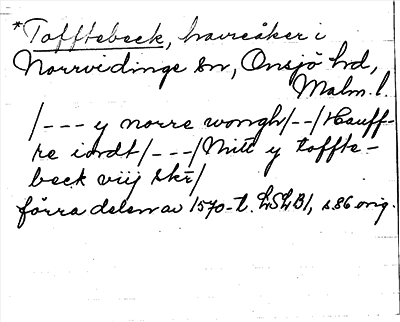 *Tofftebeck, havreåker i
Norrvidinge sn, Onsjö hd,
Malm. l.
/--- y norre wongh/--/Hauff-
re iordt/---/Mitt y toffte-
beck viij skr/
förra delen av 1570-t. LSLB1, s 86 orig.